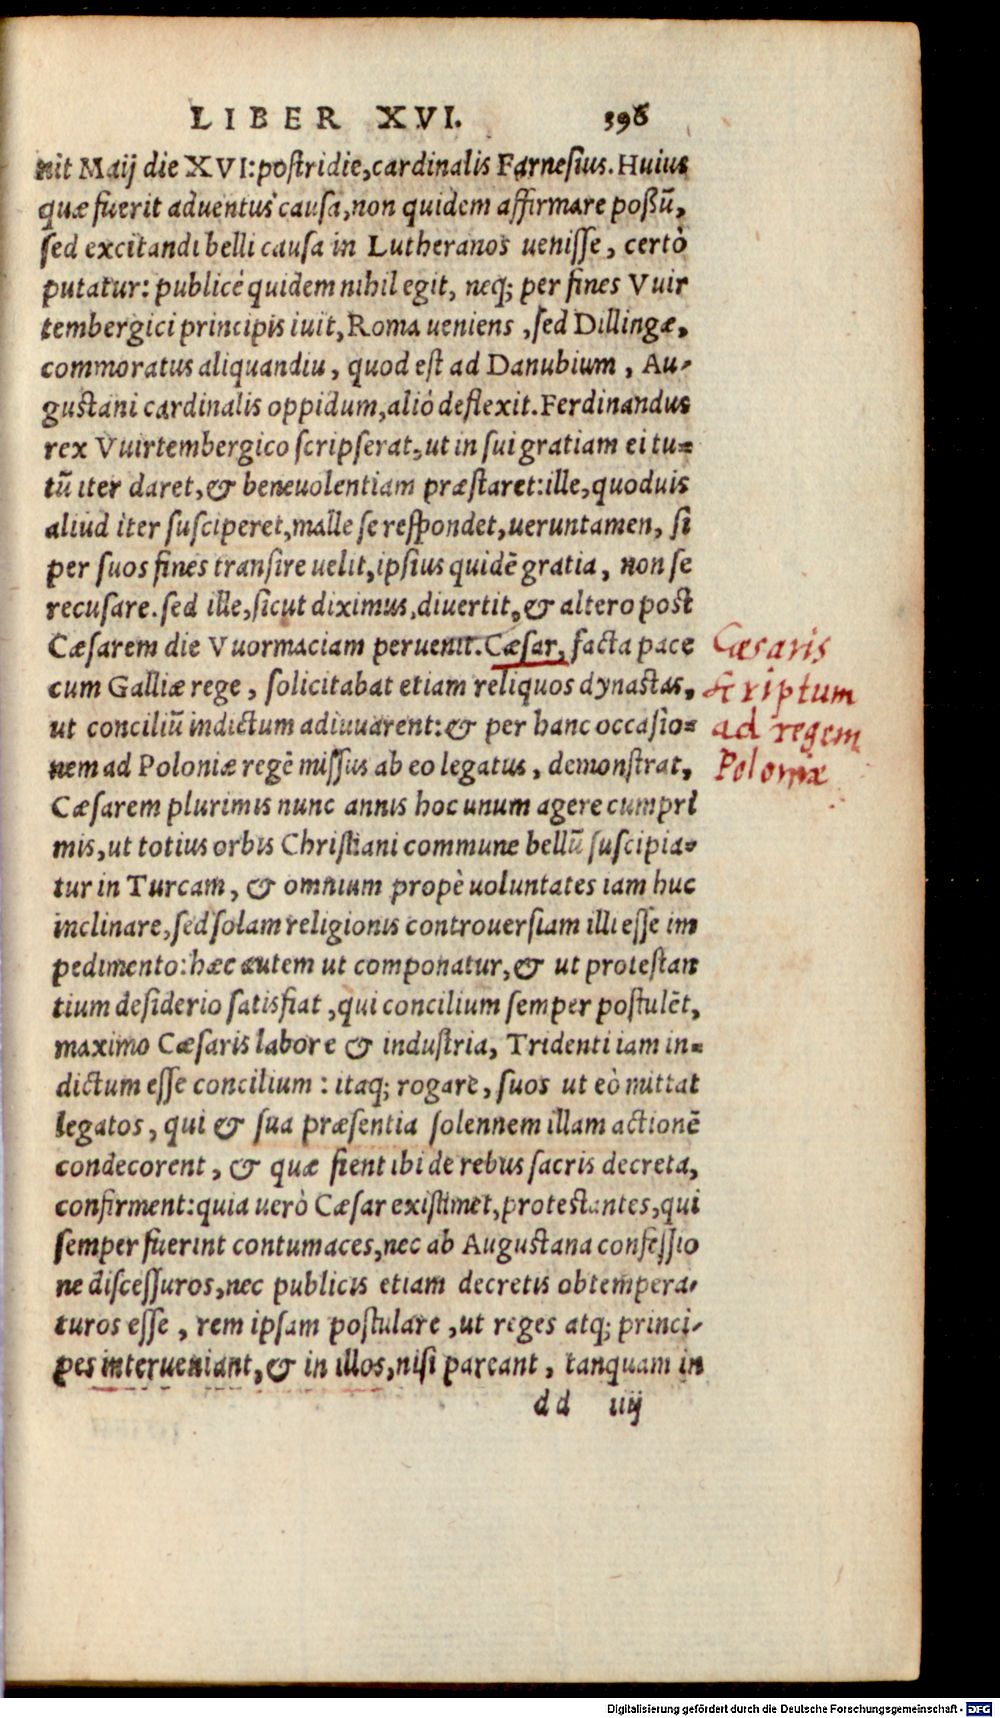 LIBER XVI. 398
nit Maij die XVI: postridie, cardinalis Farnesius. Huius
quæ fuerit aduentus causa, non quidem affirmare possū,
sed excitandi belli causa in Lutheranos uenisse, certò
putatur: publicè quidem nihil egit, neq; per fines Vuir
tembergici principis iuit, Roma ueniens, sed Dillingæ,
commoratus aliquandiu, quod est ad Danubium, Au-
gustani cardinalis oppidum, aliò deflexit. Ferdinandus
rex Vuirtembergico scripserat, ut in sui gratiam ei tu-
tū iter daret, & beneuolentiam præstaret: ille, quoduis
aliud iter susciperet, malle se respondet, ueruntamen, si
per suos fines transire uelit, ipsius quidē gratia, non se
recusare. sed ille, sicut diximus, diuertit, & altero post
Cæsarem die Vuormaciam peruenit. Cæsar, facta pace
cum Galliæ rege, solicitabat etiam reliquos dynastas,
ut conciliū indictum adiuuarent: & per hanc occasio-
nem ad Poloniæ regē missus ab eo legatus, demonstrat,
Cæsarem plurimis nunc annis hoc unum agere cumpri
mis, ut totius orbis Christiani commune bellū suscipia-
tur in Turcam, & omnium propè uoluntates iam huc
inclinare, sed solam religionis controuersiam illi esse im
pedimento: hæc autem ut componatur, & ut protestan
tium desiderio satisfiat, qui concilium semper postulēt,
maximo Cæsaris labore & industria, Tridenti iam in-
dictum esse concilium: itaq; rogare, suos ut eò mittat
legatos, qui & sua præsentia solennem illam actionē
condecorent, & quæ fient ibi de rebus sacris decreta,
confirment: quia uerò Cæsar existimet, protestantes, qui
semper fuerint contumaces, nec ab Augustana confessio
ne discessuros, nec publicis etiam decretis obtempera-
turos esse, rem ipsam postulare, ut reges atq; princi-
pes interueniant, & in illos, nisi pareant, tanquam in
dd iiij
Cæsaris
scriptum
ad regem
Poloniæ
Digitalisierung gefördert durch die Deutsche Forschungsgemeinschaft - DFG